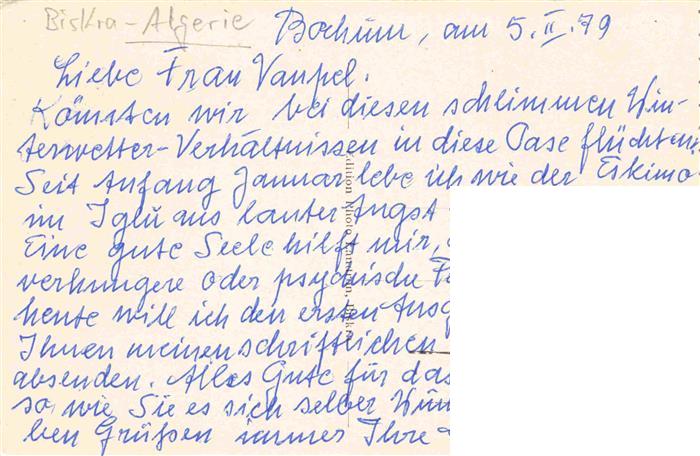 Biskra - Algerie
Bochum, am 5.II.79
Liebe Frau Vaupel.
Könnten wir bei diesen schlimmen Win-
terwetter-Verhältnissen in diese Oase flüchten!
Seit Anfang Januar lebe ich wie der Eskimo
im Iglu aus lauter Angst
Eine gute Seele hilft mir,
verhungere oder psychische
heute will ich den ersten
Ihnen meinen schriftlichen
absenden. Alles Gute für das
so wie Sie es sich selber
ben Grüßen immer Ihre